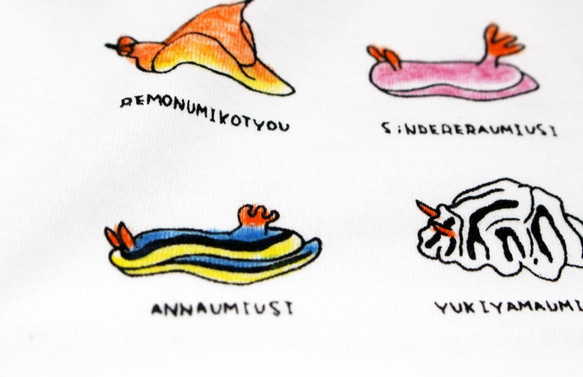 REMONUMIKOTYOU
SiNDERERAUMIUSI
ANNAUMIUSI
YUKIYAMAUMI